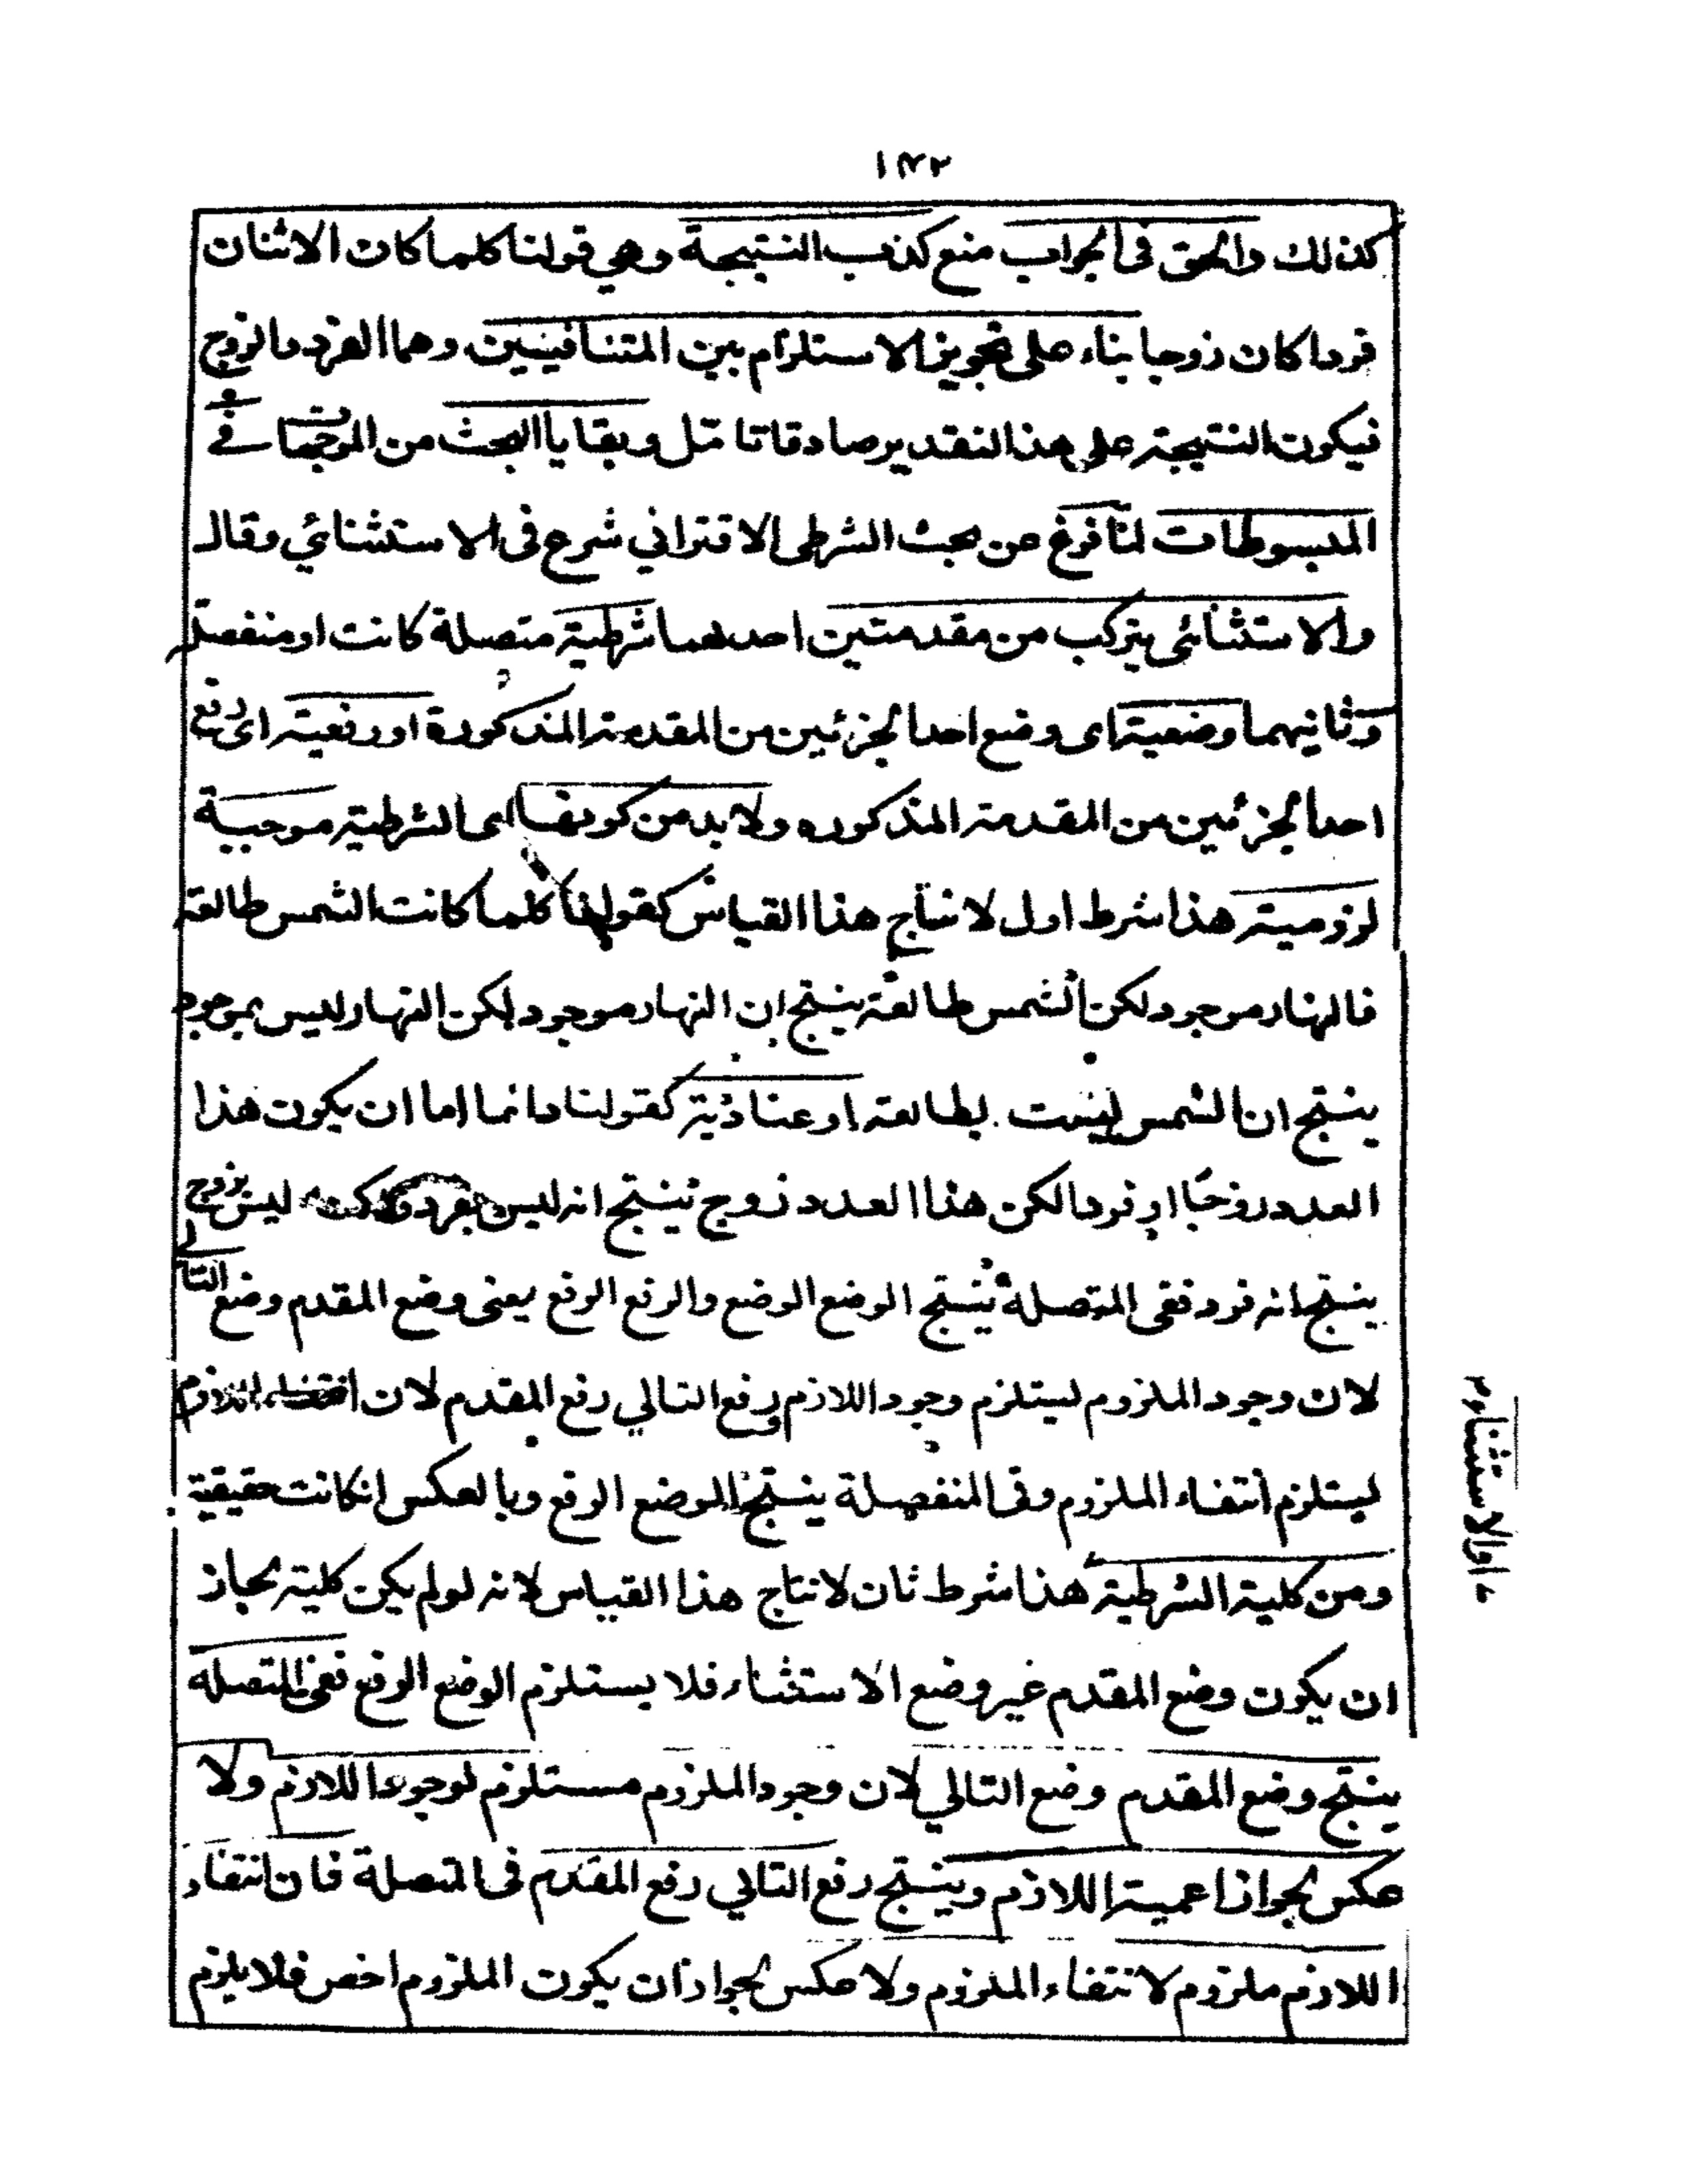 ١٤٢
كذالك والحق فى الجواب منع كذب النتيجة وهي قولنا كلما كان الاثنان
فردا كان زوجا بناء على تجويز الاستلزام بين المتنافيين وهما الفرد والزوج
فيكون النتيجة على هذا التقدير صادقا تامل وبقايا البحث من الموجهات فى
المبسوطات لما فرغ عن بحث الشرطى الاقتراني شرع فى الاستثنائي وقال
والاستثنائى يتركب من مقدمتين احدهما شرطية متصلة كانت او منفصلة
وثانيهما وضعية اى وضع احد الجزئين من المقدمة المذكورة او رفعية اى رفع
احد الجزئين من المقدمة المذكوره ولابد من كونها اى الشرطية موجبة
لزومية هذا شرط اول لانتاج هذا القياس كقولنا كلما كانت الشمس طالعة
فالنهار موجود لكن الشمس طالعة ينتج ان النهار موجود لكن النهار ليس بموجود
ينتج ان الشمس ليست بطالعة او عنادية كقولنا دائما اما ان يكون هذا
العدد زوجا او فردا لكن هذا العدد زوج ينتج انه ليس بفرد ليس بزوج
ينتج انه فرد ففى المتصلة ينتج الوضع الوضع والرفع الرفع يعنى وضع المقدم وضع التالى
لان وجود الملزوم ليستلزم وجود اللازم ورفع التالي رفع المقدم لان انتفاء اللازم
ليستلزم انتفاء الملزوم وفى المنفصلة ينتج الوضع الرفع وبالعكس انكانت حقيقية
ومن كلية الشرطية هذا شرط ثان لانتاج هذا القياس لانه لو لم يكن كلية لجاز
ان يكون وضع المقدم غير وضع الاستثناء فلا يستلزم الوضع الرفع ففى المتصله
ينتج وضع المقدم وضع التالي لان وجود الملزوم مستلزم لوجود اللازم ولا
عكس لجواز اعمية اللازم وينتج رفع التالي رفع المقدم فى المتصلة فان انتفاء
اللازم ملزوم لانتفاء الملزوم ولا عكس لجواز ان يكون الملزوم اخص فلا يلزم